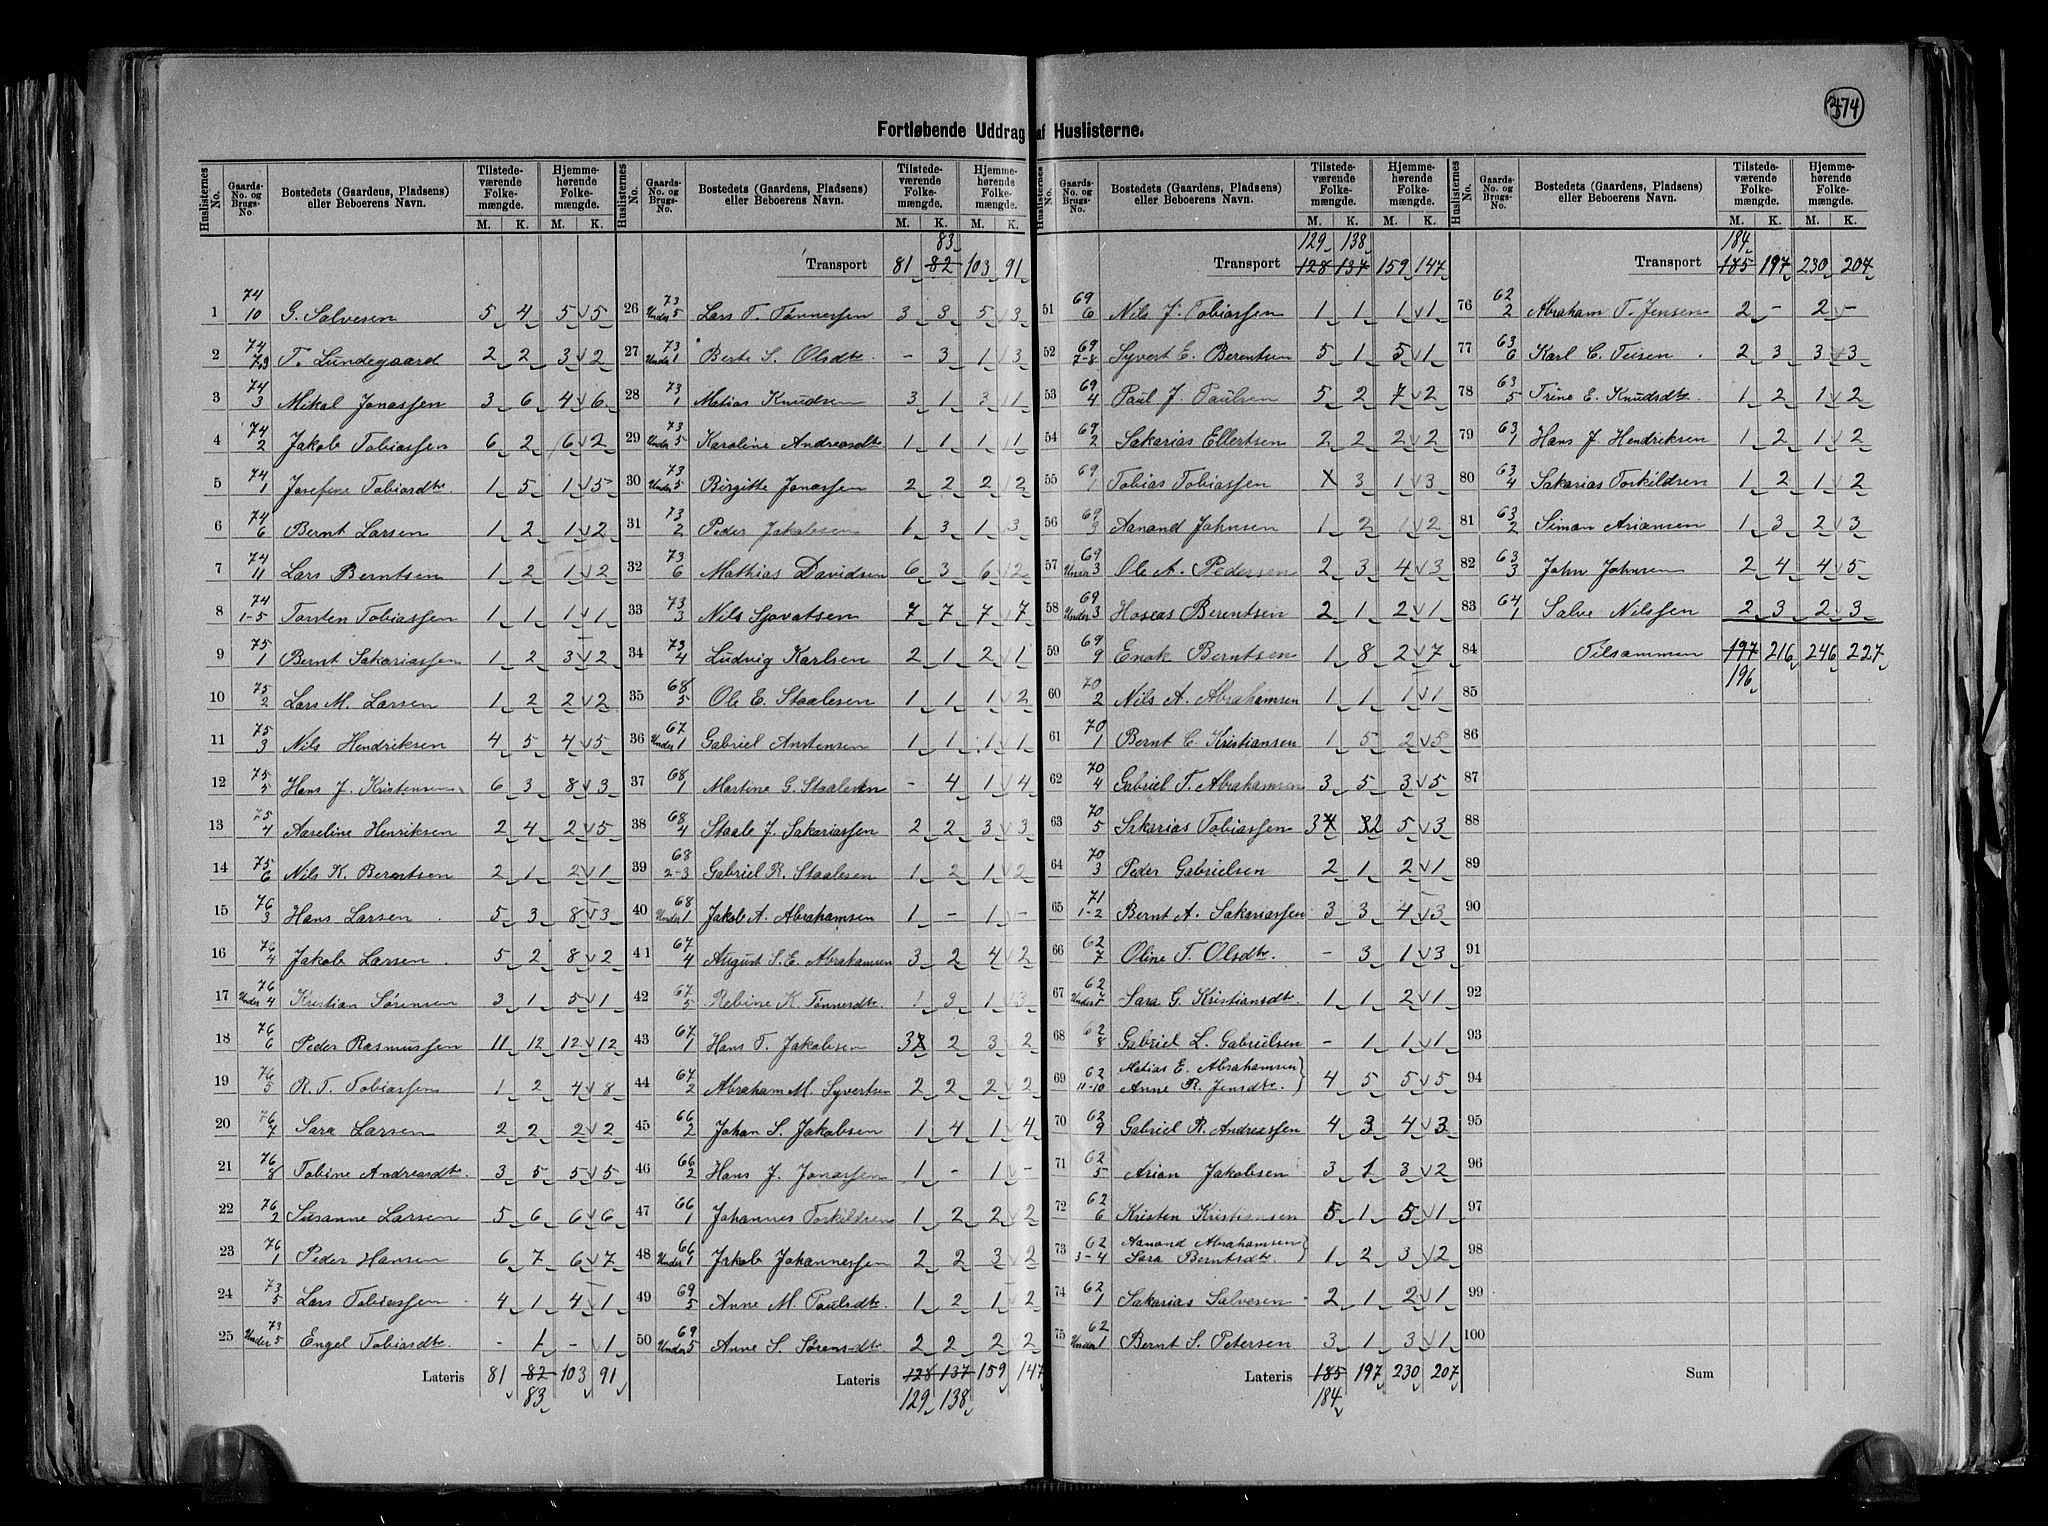 374
Fortløbende Uddrag af Huslisterne.
Huslisternes No. | Gaards-No. og Brugs-No. | Bostedets (Gaardens, Pladsens) eller Beboerens Navn. | Tilstedeværende Folkemængde. M. K. | Hjemmehørende Folkemængde. M. K.
1 74/10 G. Salvesen 5 4 5 5
2 74/79 T. Lundegaard 2 2 3 2
3 74/3 Mikal Jonassen 3 6 4 6
4 74/2 Jakob Tobiassen 6 2 6 2
5 74/1 Josefine Tobiasdtr. 1 5 1 5
6 74/6 Bernt Larsen 1 2 1 2
7 74/11 Lars Berntsen 1 2 1 2
8 74/1-5 Torsten Tobiassen 1 1 1 1
9 75/1 Bernt Sakariassen 1 2 3 2
10 75/2 Lars M. Larsen 1 2 2 2
11 75/3 Nils Hendriksen 4 5 4 5
12 75/5 Hans J. Kristensen 6 3 8 3
13 75/4 Aseline Henriksen 2 4 2 5
14 75/6 Nils K. Berntsen 2 1 2 1
15 76/3 Hans Larsen 5 3 8 3
16 76/4 Jakob Larsen 5 2 8 2
17 76/Under 4 Kristian Sørensen 3 1 5 1
18 76/6 Peder Rasmussen 11 12 12 12
19 76/5 R. T. Tobiassen 1 2 4 8
20 76/7 Sara Larsen 2 2 2 2
21 76/8 Tobine Andreasdtr. 3 5 5 5
22 76/2 Susanne Larsen 5 6 6 6
23 76/1 Peder Hansen 6 7 6 7
24 73/5 Lars Tobiassen 4 1 4 1
25 73/Under 5 Engel Tobiasdtr. - 1 - 1
Lateris 81 82 103 91
83
83
Transport 81 82 103 91
26 73/Under 5 Lars T. Tønnessen 3 3 5 3
27 73/Under 1 Berte S. Olsdtr. - 3 1 3
28 73/1 Matias Knudsen 3 1 3 1
29 73/Under 5 Karoline Andreasdtr 1 1 1 1
30 73/Under 5 Birgitte Jonassen 2 2 2 2
31 73/2 Peder Jakobsen 1 3 1 3
32 73/6 Mathias Davidsen 6 3 6 2
33 73/3 Nils Sjovatsen 7 7 7 7
34 73/4 Ludvig Karlsen 2 1 2 1
35 68/5 Ole E. Staalesen 1 1 1 2
36 67/Under 1 Gabriel Anstensen 1 1 1 1
37 68/1 Martine G. Staalesen - 4 1 4
38 68/4 Staale J. Sakariassen 2 2 3 3
39 68/2-3 Gabriel R. Staalesen 1 2 1 2
40 68/Under 1 Jakob A. Abrahamsen 1 - 1 -
41 67/4 August S. E. Abrahamsen 3 2 4 2
42 67/5 Rebine K. Tønnesdtr. 1 3 1 3
43 67/1 Hans T. Jakobsen 3 2 3 2
44 67/2 Abraham M. Syvertsen 2 2 2 2
45 66/2 Johan S. Jakobsen 1 4 1 4
46 66/2 Hans J. Jonassen 1 - 1 -
47 66/1 Johannes Torkildsen 1 2 2 2
48 66/Under 1 Jakob Johannessen 2 2 3 2
49 69/5 Anne M. Paulsdtr. 1 2 1 2
50 69/Under 5 Anne S. Sørensdtr. 2 2 2 2
Lateris 128 137 159 147
129 138
129 138
Transport 128 137 159 147
51 69/6 Nils J. Tobiassen 1 1 1 1
52 69/7-8 Syvert E. Berentsen 5 1 5 1
53 69/4 Paul J. Paulsen 5 2 7 2
54 69/2 Sakarias Ellertsen 2 2 2 2
55 69/1 Tobias Tobiassen 1 3 1 3
56 69/3 Aanand Johnsen 1 2 1 2
57 69/Under 3 Ole A. Pedersen 2 3 4 3
58 69/Under 3 Hoseas Berentsen 2 1 2 1
59 69/9 Enok Berntsen 1 8 2 7
60 70/2 Nils A. Abrahamsen 1 1 1 1
61 70/1 Bernt C. Kristiansen 1 5 2 5
62 70/4 Gabriel T. Abrahamsen 3 5 3 5
63 70/5 Sakarias Tobiassen 3 2 5 3
64 70/3 Peder Gabrielsen 2 1 2 1
65 71/1-2 Bernt A. Sakariassen 3 3 4 3
66 62/7 Oline T. Olsdtr. - 3 1 3
67 62/Under 7 Sara G. Kristiansdtr. 1 1 2 1
68 62/8 Gabriel L. Gabrielsen - 1 1 1
69 62/11-10 Matias E. Abrahamsen } Anne R. Jensdtr. 4 5 5 5
70 62/9 Gabriel R. Andreassen 4 3 4 3
71 62/5 Arian Jakobsen 3 1 3 2
72 62/6 Kristen Kristiansen 5 1 5 1
73 62/3-4 Aanand Abrahamsen } Sara Berntsdtr. 1 2 3 2
74 62/1 Sakarias Salvesen 2 1 2 1
75 62/Under 1 Bernt S. Petersen 3 1 3 1
Lateris 185 197 230 207
184
184
Transport 185 197 230 207
76 62/2 Abraham T. Jensen 2 - 2 -
77 63/6 Karl C. Teisen 2 3 3 3
78 63/5 Trine E. Knudsdtr. 1 2 1 2
79 63/1 Hans J. Hendriksen 1 2 1 2
80 63/4 Sakarias Torkildsen 1 2 1 2
81 63/2 Simon Ariansen 1 3 2 3
82 63/3 John Johnsen 2 4 4 5
83 64/1 Salve Nilssen 2 3 2 3
84 Tilsammen 197 216 246 227
196
85
86
87
88
89
90
91
92
93
94
95
96
97
98
99
100
Sum